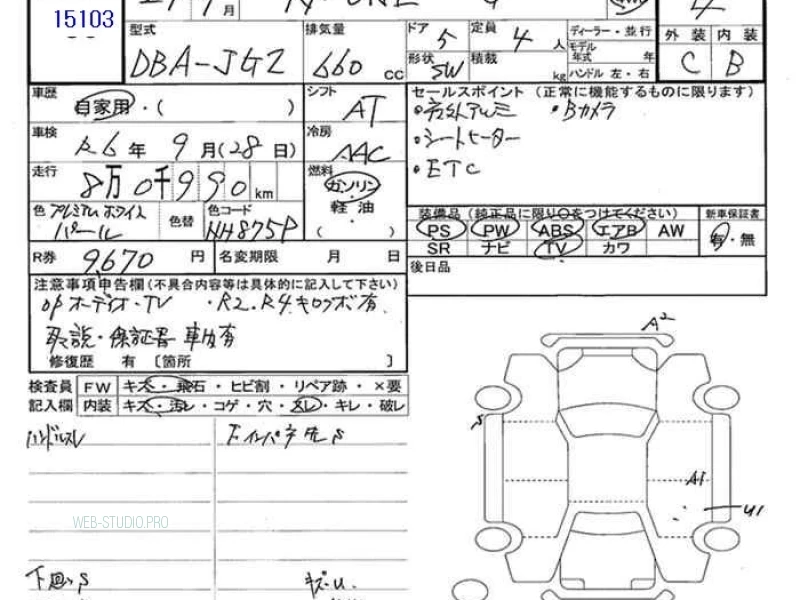 15103
月
型式
DBA-JG2
排気量
660 CC
ドア
5
定員
4 人
形状
SW
積載
kg
ディーラー・並行
モデル年式 年
ハンドル 左・右
外装 内装
C B
車歴
自家用・( )
シフト
AT
セールスポイント (正常に機能するものに限ります)
・Bカメラ
・シートヒーター
・ETC
車検
R6年 9月(28日)
冷房
AAC
走行
8万0千990km
燃料
ガソリン
・
軽油
( )
色
プレミアムホワイトパール
色替
色コード
NH875P
装備品(純正品に限り○をつけてください)
新車保証書
PS PW ABS エアB AW
有・無
SR ナビ TV カワ
R券 9,670円
名変期限 月 日
後日品
注意事項申告欄(不具合内容等は具体的に記入して下さい)
OPオーディオ・TV ・R2.R4キロクボ有
取説・保証書 車内有
修復歴 有 〔箇所 〕
検査員 FW キズ・飛石・ヒビ割・リペア跡・×要
記入欄 内装 キズ・汚レ・コゲ・穴・スレ・キレ・破レ
ハンドルスレ
A2
S
A1
U1
WEB-STUDIO.PRO
下廻りS
キズ・U.